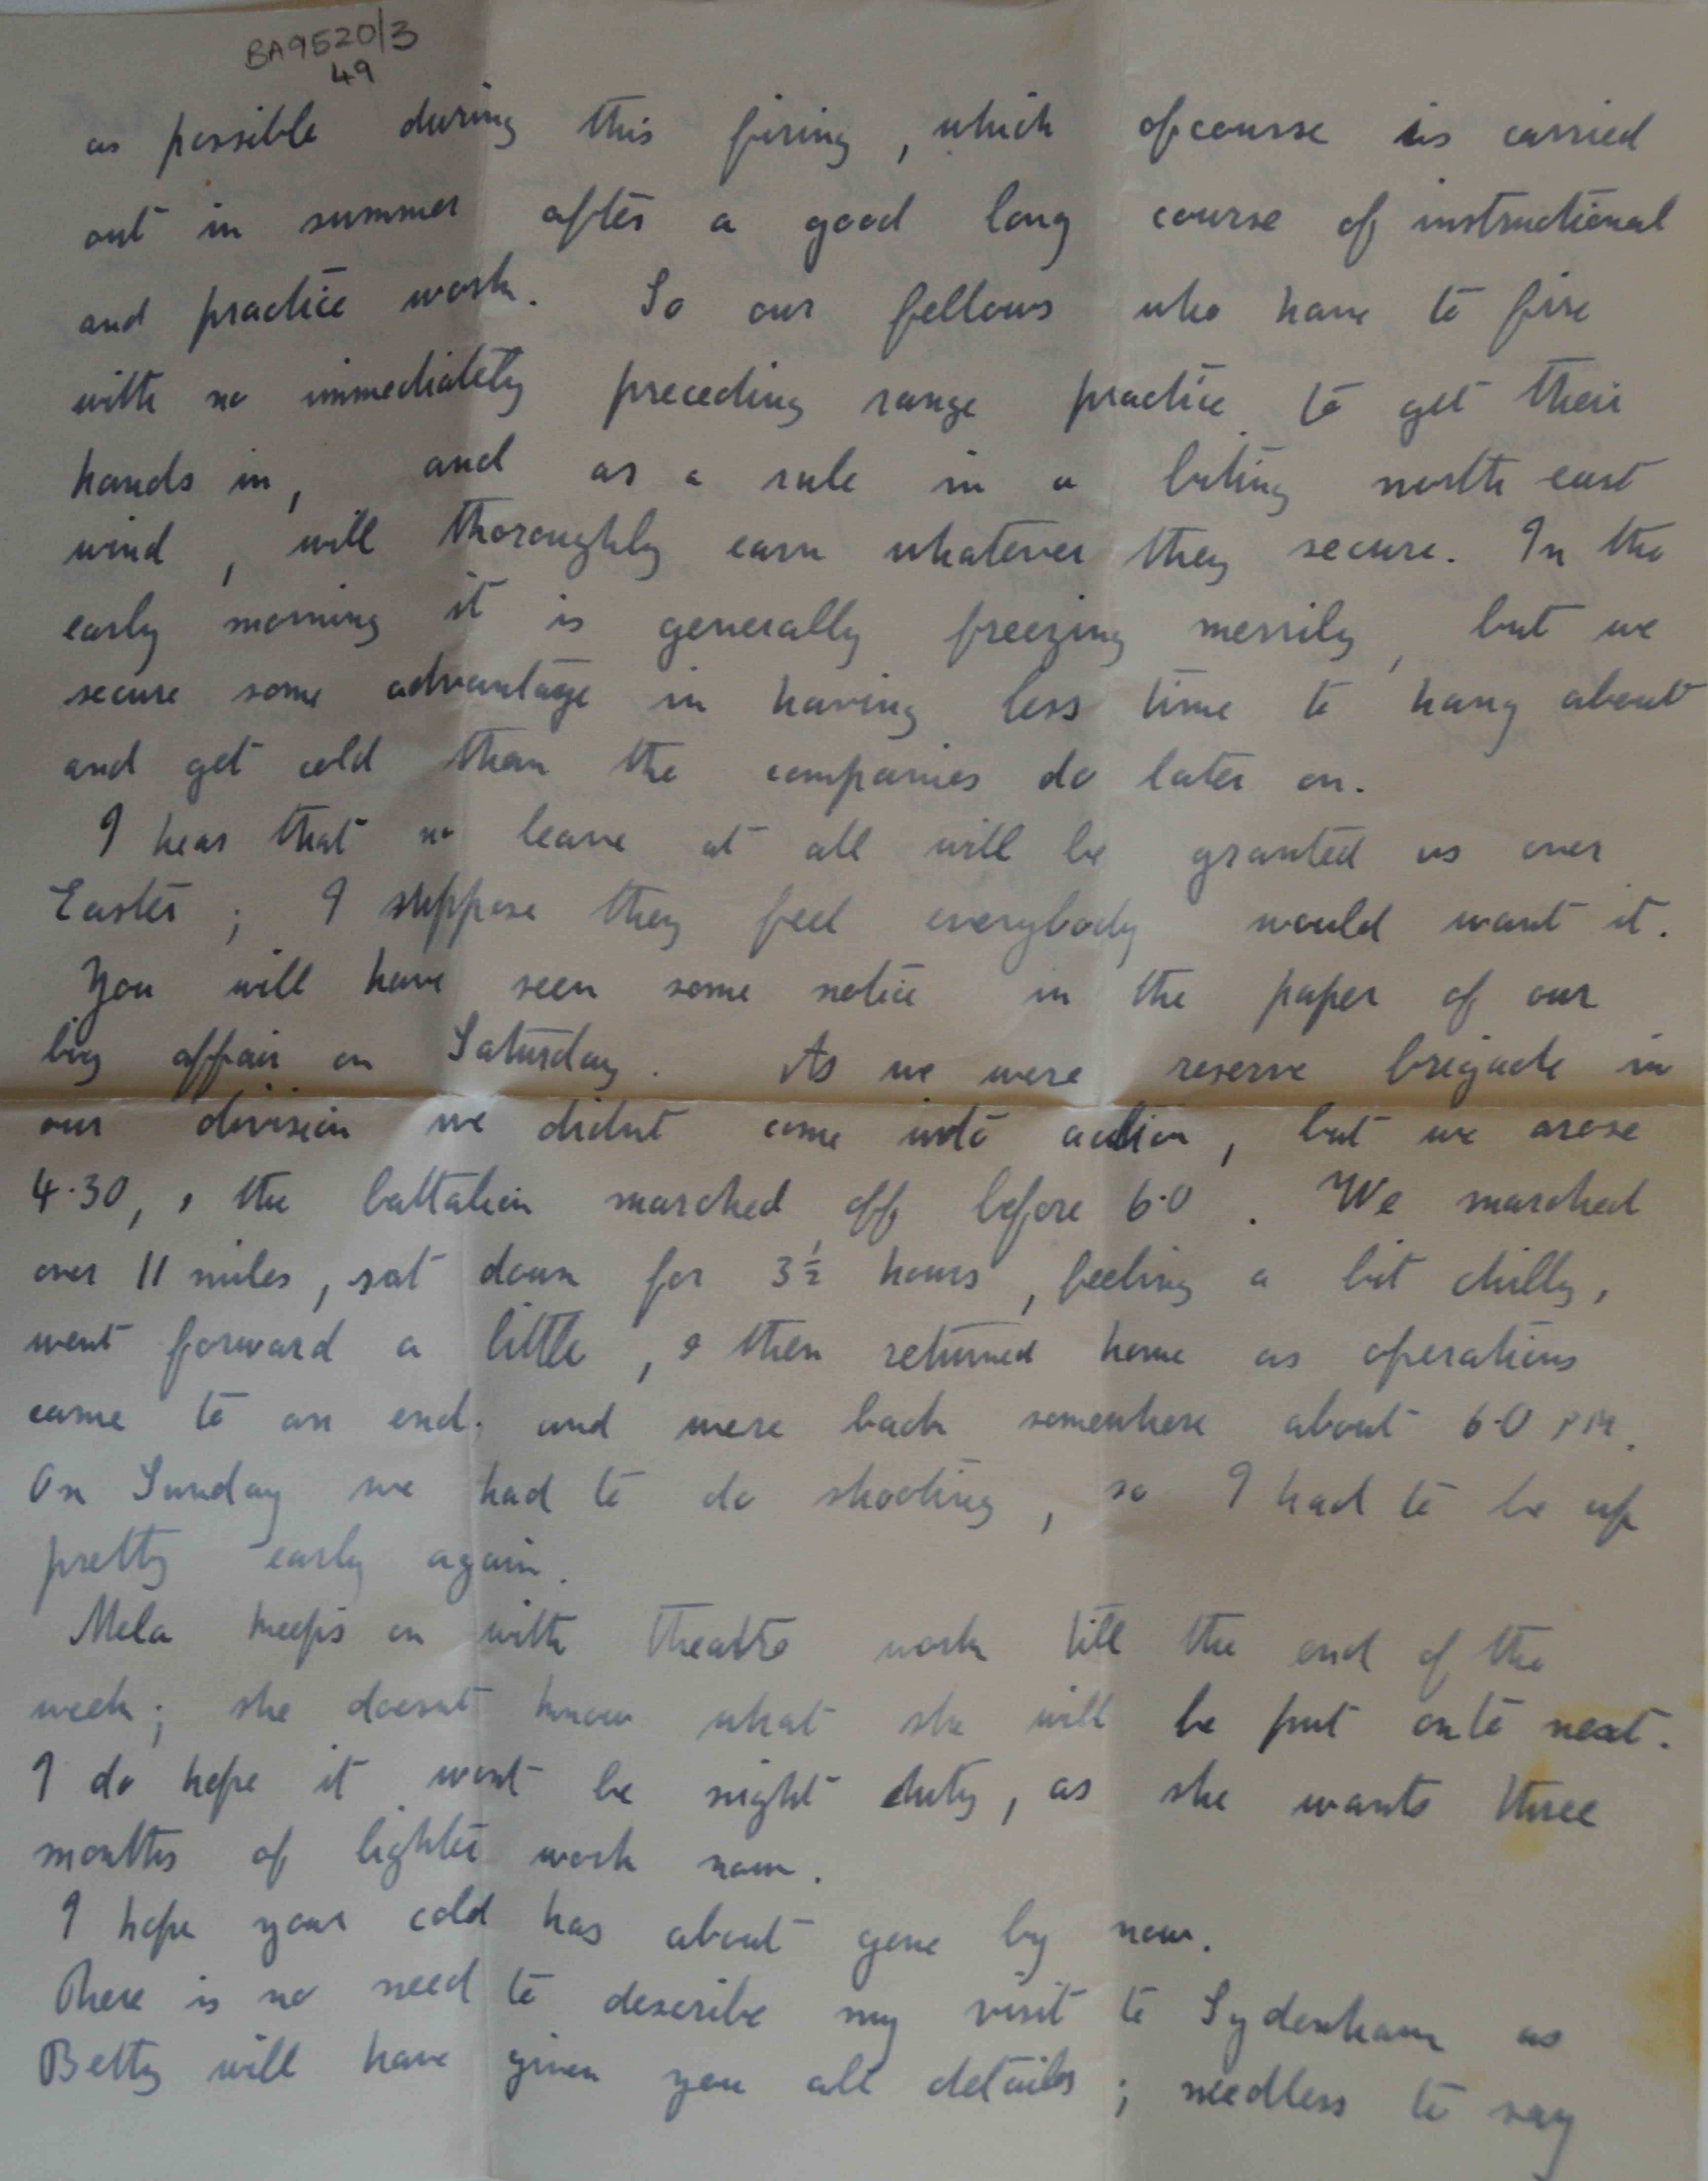 BA9520/3
49
as possible during this firing, which ofcourse is carried
out in summer after a good long course of instructional
and practice work. So our fellows who have to fire
with no immediately preceding range practice to get their
hands in, and as a rule in a biting north east
wind, will thoroughly earn whatever they secure. In the
early morning it is generally freezing merrily, but we
secure some advantage in having less time to hang about
and get cold than the companies do later on.
I hear that no leave at all will be granted us over
Easter; I suppose they feel everybody would want it.
You will have seen some notice in the paper of our
big affair on Saturday. As we were reserve brigade in
our division we didnt come into action, but we arose
4.30, & the battalion marched off before 6.0. We marched
over 11 miles, sat down for 3½ hours, feeling a bit chilly,
went forward a little, & then returned home as operations
came to an end. and were back somewhere about 6.0 PM.
On Sunday we had to do shooting, so I had to be up
pretty early again.
Mela keeps on with theatre work till the end of the
week; she doesnt know what she will be put onto next.
I do hope it wont be night duty, as she wants three
months of lighter work now.
I hope your cold has about gone by now.
There is no need to describe my visit to Sydenham as
Betty will have given you all details; needless to say